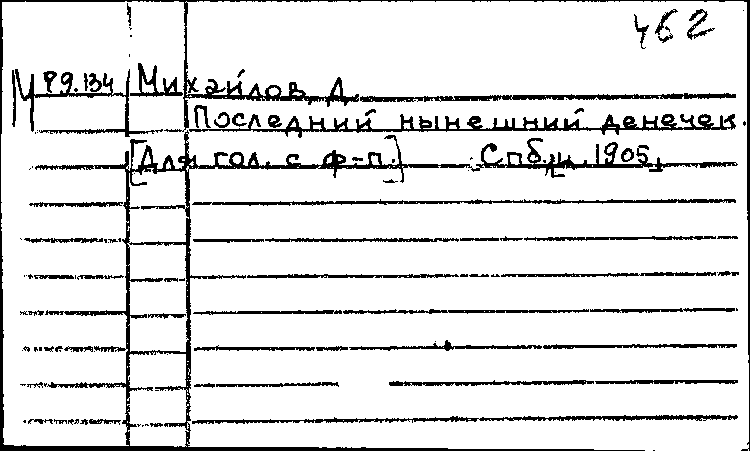 462
М Р9.134 Михайлов, Д.
Последний нынешний денечек.
[Для гол. с ф-п.] Спб., [1905]